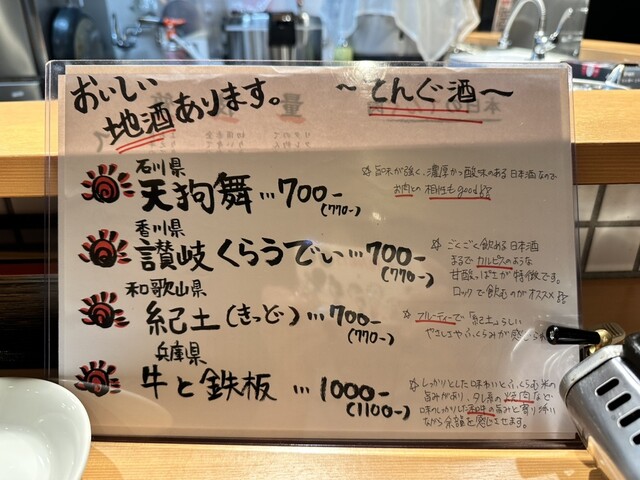 おいしい
地酒あります。
〜てんぐ酒〜
石川県
天狗舞…700-
(770-)
☆旨味が強く、濃厚かつ酸味のある日本酒なので
お肉との相性もgood!!
香川県
讃岐くらうでぃ…700-
(770-)
☆ごくごく飲める日本酒
まるでカルピスのような
甘酸っぱさが特徴です。
ロックで飲むのがオススメ!!
和歌山県
紀土(きっど)…700-
(770-)
☆フルーティーで「紀土」らしい
やさしさやふくらみが感じられ
兵庫県
牛と鉄板…1000-
(1100-)
☆しっかりとした味わいとふくらむ米の
旨みがあり、タレ系の焼肉など
味のしっかりした和牛の旨みと寄り添い
ながら余韻を感じさせます。